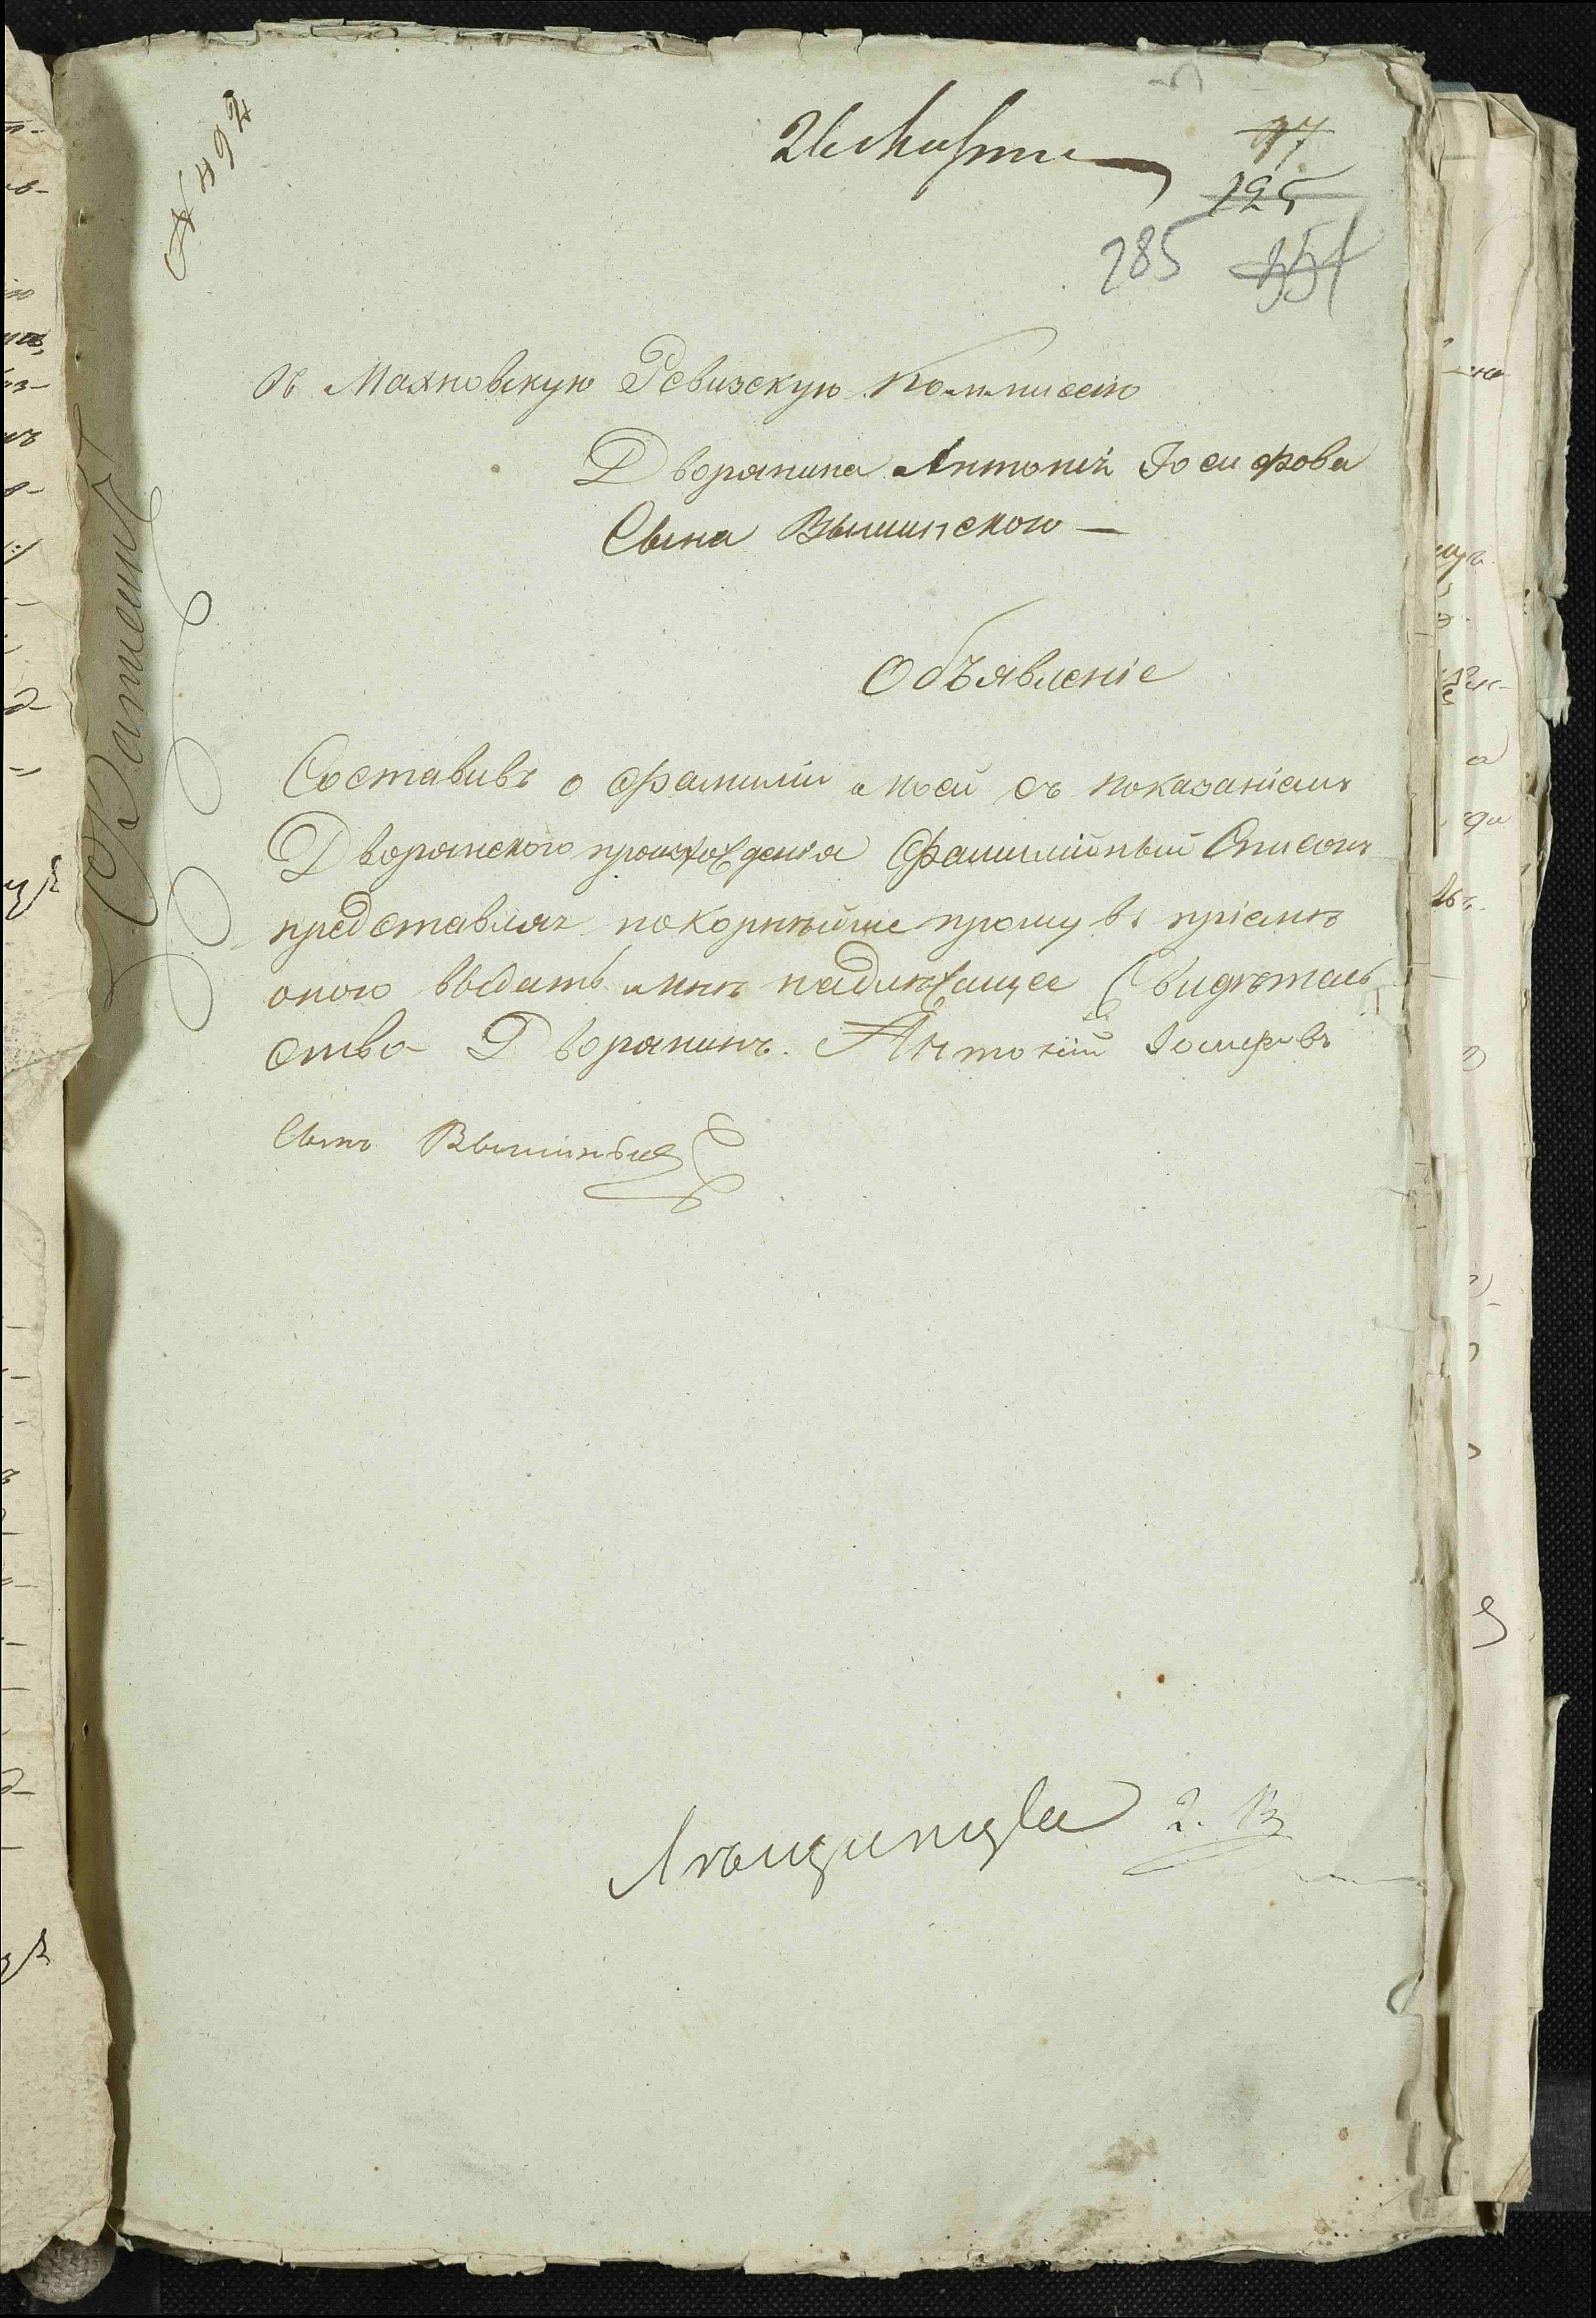 № 492
26 Марта
97
195
285 351
Въ Махновскую Ревизскую Коммисію
Дворянина Антонія Іосифова
Сына Вышинского —
Объявленіе
Составивъ о фамиліи моей съ показаніемъ
Дворянского происхожденія Фамилійный Списокъ
представляя покорнѣйше прошу въ пріемѣ
оного выдать мнѣ надлежащее Свидѣтель
ство Дворянинъ Антоній Іосифовъ
Сынъ Вышинскій